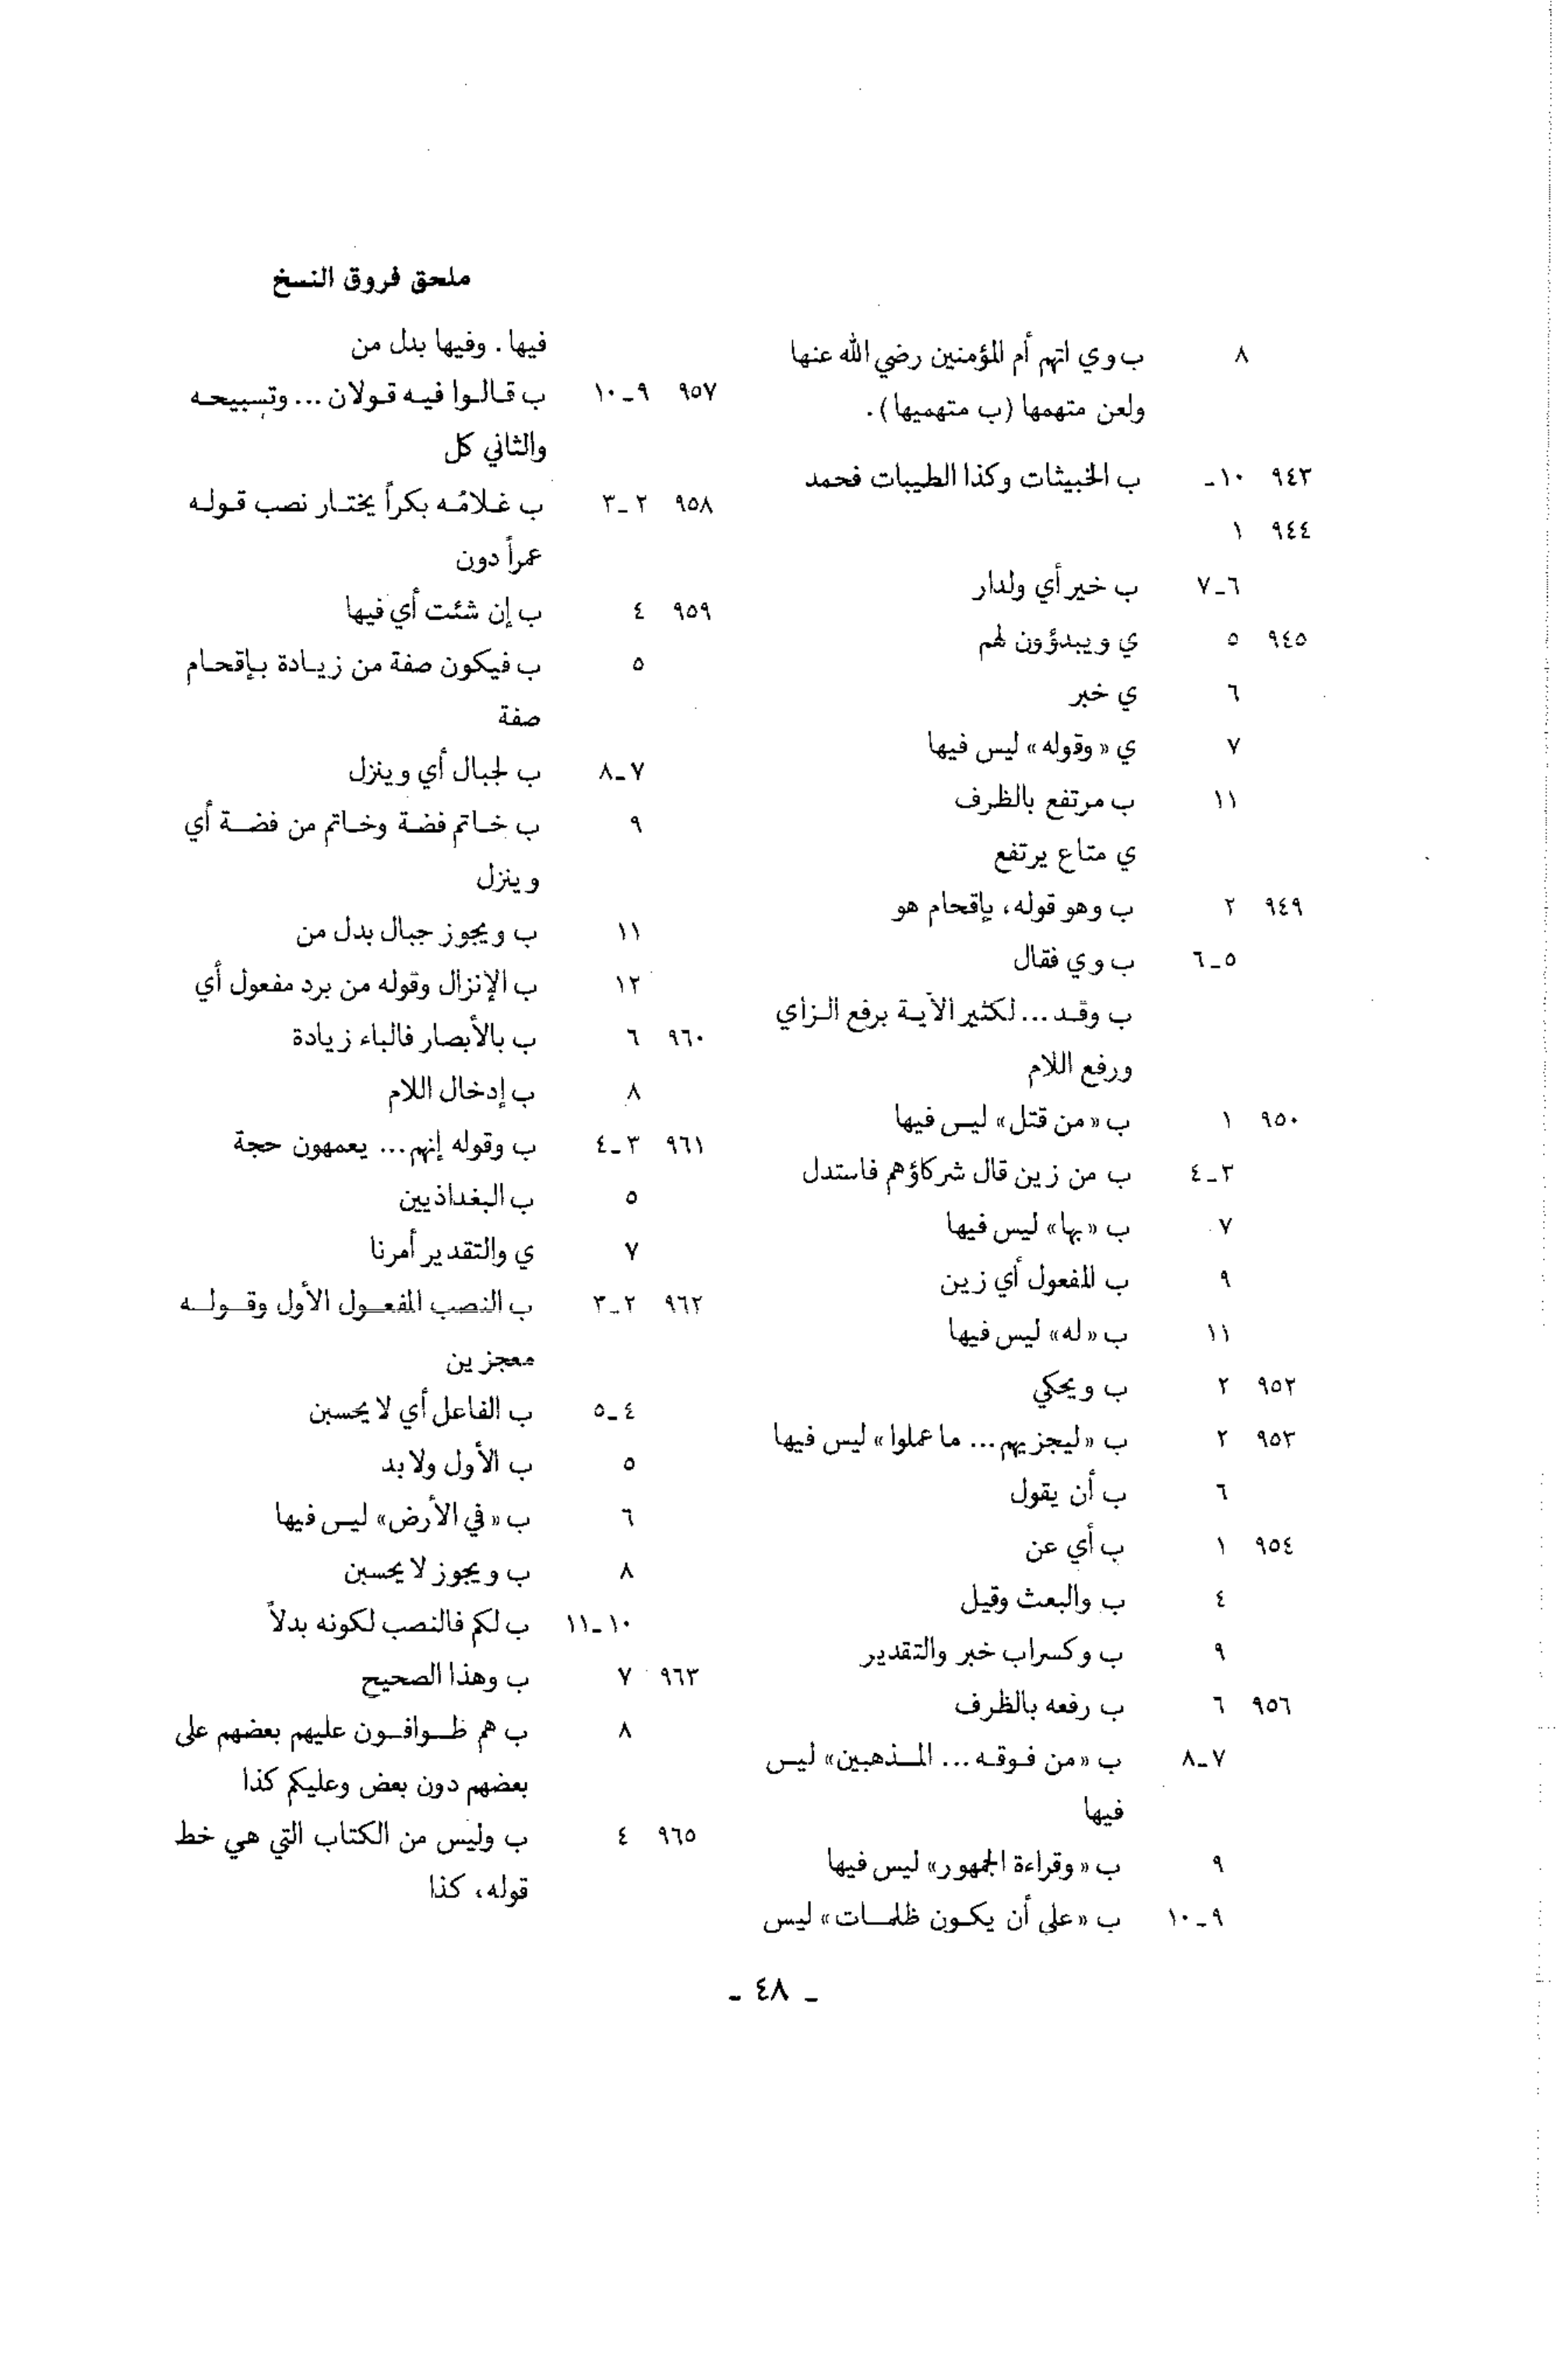 ملحق فروق النسخ
٨ ب وي اتهم أم المؤمنين رضي الله عنها
ولعن متهمها (ب متهميها).
٩٤٣ ١٠- ب الخبيثات وكذا الطيبات فحمد
٩٤٤ ١
٦-٧ ب خير أي ولدار
٩٤٥ ٥ ي ويبدؤون لهم
٦ ي خبر
٧ ي «وقوله» ليس فيها
١١ ب مرتفع بالظرف
ي متاع يرتفع
٩٤٩ ٢ ب وهو قوله، بإقحام هو
٥-٦ ب وي فقال
ب وقد ... لكثير الآية برفع الزاي
ورفع اللام
٩٥٠ ١ ب «من قتل» ليس فيها
٣-٤ ب من زين قال شركاؤهم فاستدل
٧ ب «بها» ليس فيها
٩ ب للمفعول أي زين
١١ ب «له» ليس فيها
٩٥٢ ٢ ب ويحكي
٩٥٣ ٢ ب «ليجزيهم ... ما عملوا» ليس فيها
٦ ب أن يقول
٩٥٤ ١ ب أي عن
٤ ب والبعث وقيل
٩ ب وكسراب خبر والتقدير
٩٥٦ ٦ ب رفعه بالظرف
٧-٨ ب «من فوقه ... المذهبين» ليس
فيها
٩ ب «وقراءة الجمهور» ليس فيها
٩-١٠ ب «على أن يكون ظلمات» ليس
فيها. وفيها بدل من
٩٥٧ ٩-١٠ ب قالوا فيه قولان ... وتسبيحه
والثاني كل
٩٥٨ ٢-٣ ب غلامُه بكراً يختار نصب قوله
عمراً دون
٩٥٩ ٤ ب إن شئت أي فيها
٥ ب فيكون صفة من زيادة بإقحام
صفة
٧-٨ ب لجبال أي وينزل
٩ ب خاتم فضة وخاتم من فضة أي
وينزل
١١ ب ويجوز جبال بدل من
١٢ ب الإنزال وقوله من برد مفعول أي
٩٦٠ ٦ ب بالأبصار فالباء زيادة
٨ ب إدخال اللام
٩٦١ ٣-٤ ب وقوله إنهم ... يعمهون حجة
٥ ب البغداذيين
٧ ي والتقدير أمرنا
٩٦٢ ٢-٣ ب النصب المفعول الأول وقوله
معجزين
٤-٥ ب الفاعل أي لا يحسبن
٥ ب الأول ولا بد
٦ ب «في الأرض» ليس فيها
٨ ب ويجوز لا يحسبن
١٠-١١ ب لكم فالنصب لكونه بدلاً
٩٦٣ ٧ ب وهذا الصحيح
٨ ب هم طوافون عليهم بعضهم على
بعضهم دون بعض وعليكم كذا
٩٦٥ ٤ ب وليس من الكتاب التي هي خط
قوله، كذا
- ٤٨ -